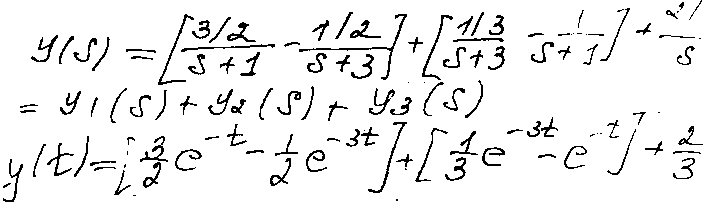 Y(s) = [(3/2)/(s+1) - (1/2)/(s+3)] + [(1/3)/(s+3) - 1/(s+1)] + (2/)/s
= Y1(s) + Y2(s) + Y3(s)
y(t) = [3/2 e^{-t} - 1/2 e^{-3t}] + [1/3 e^{-3t} - e^{-t}] + 2/3